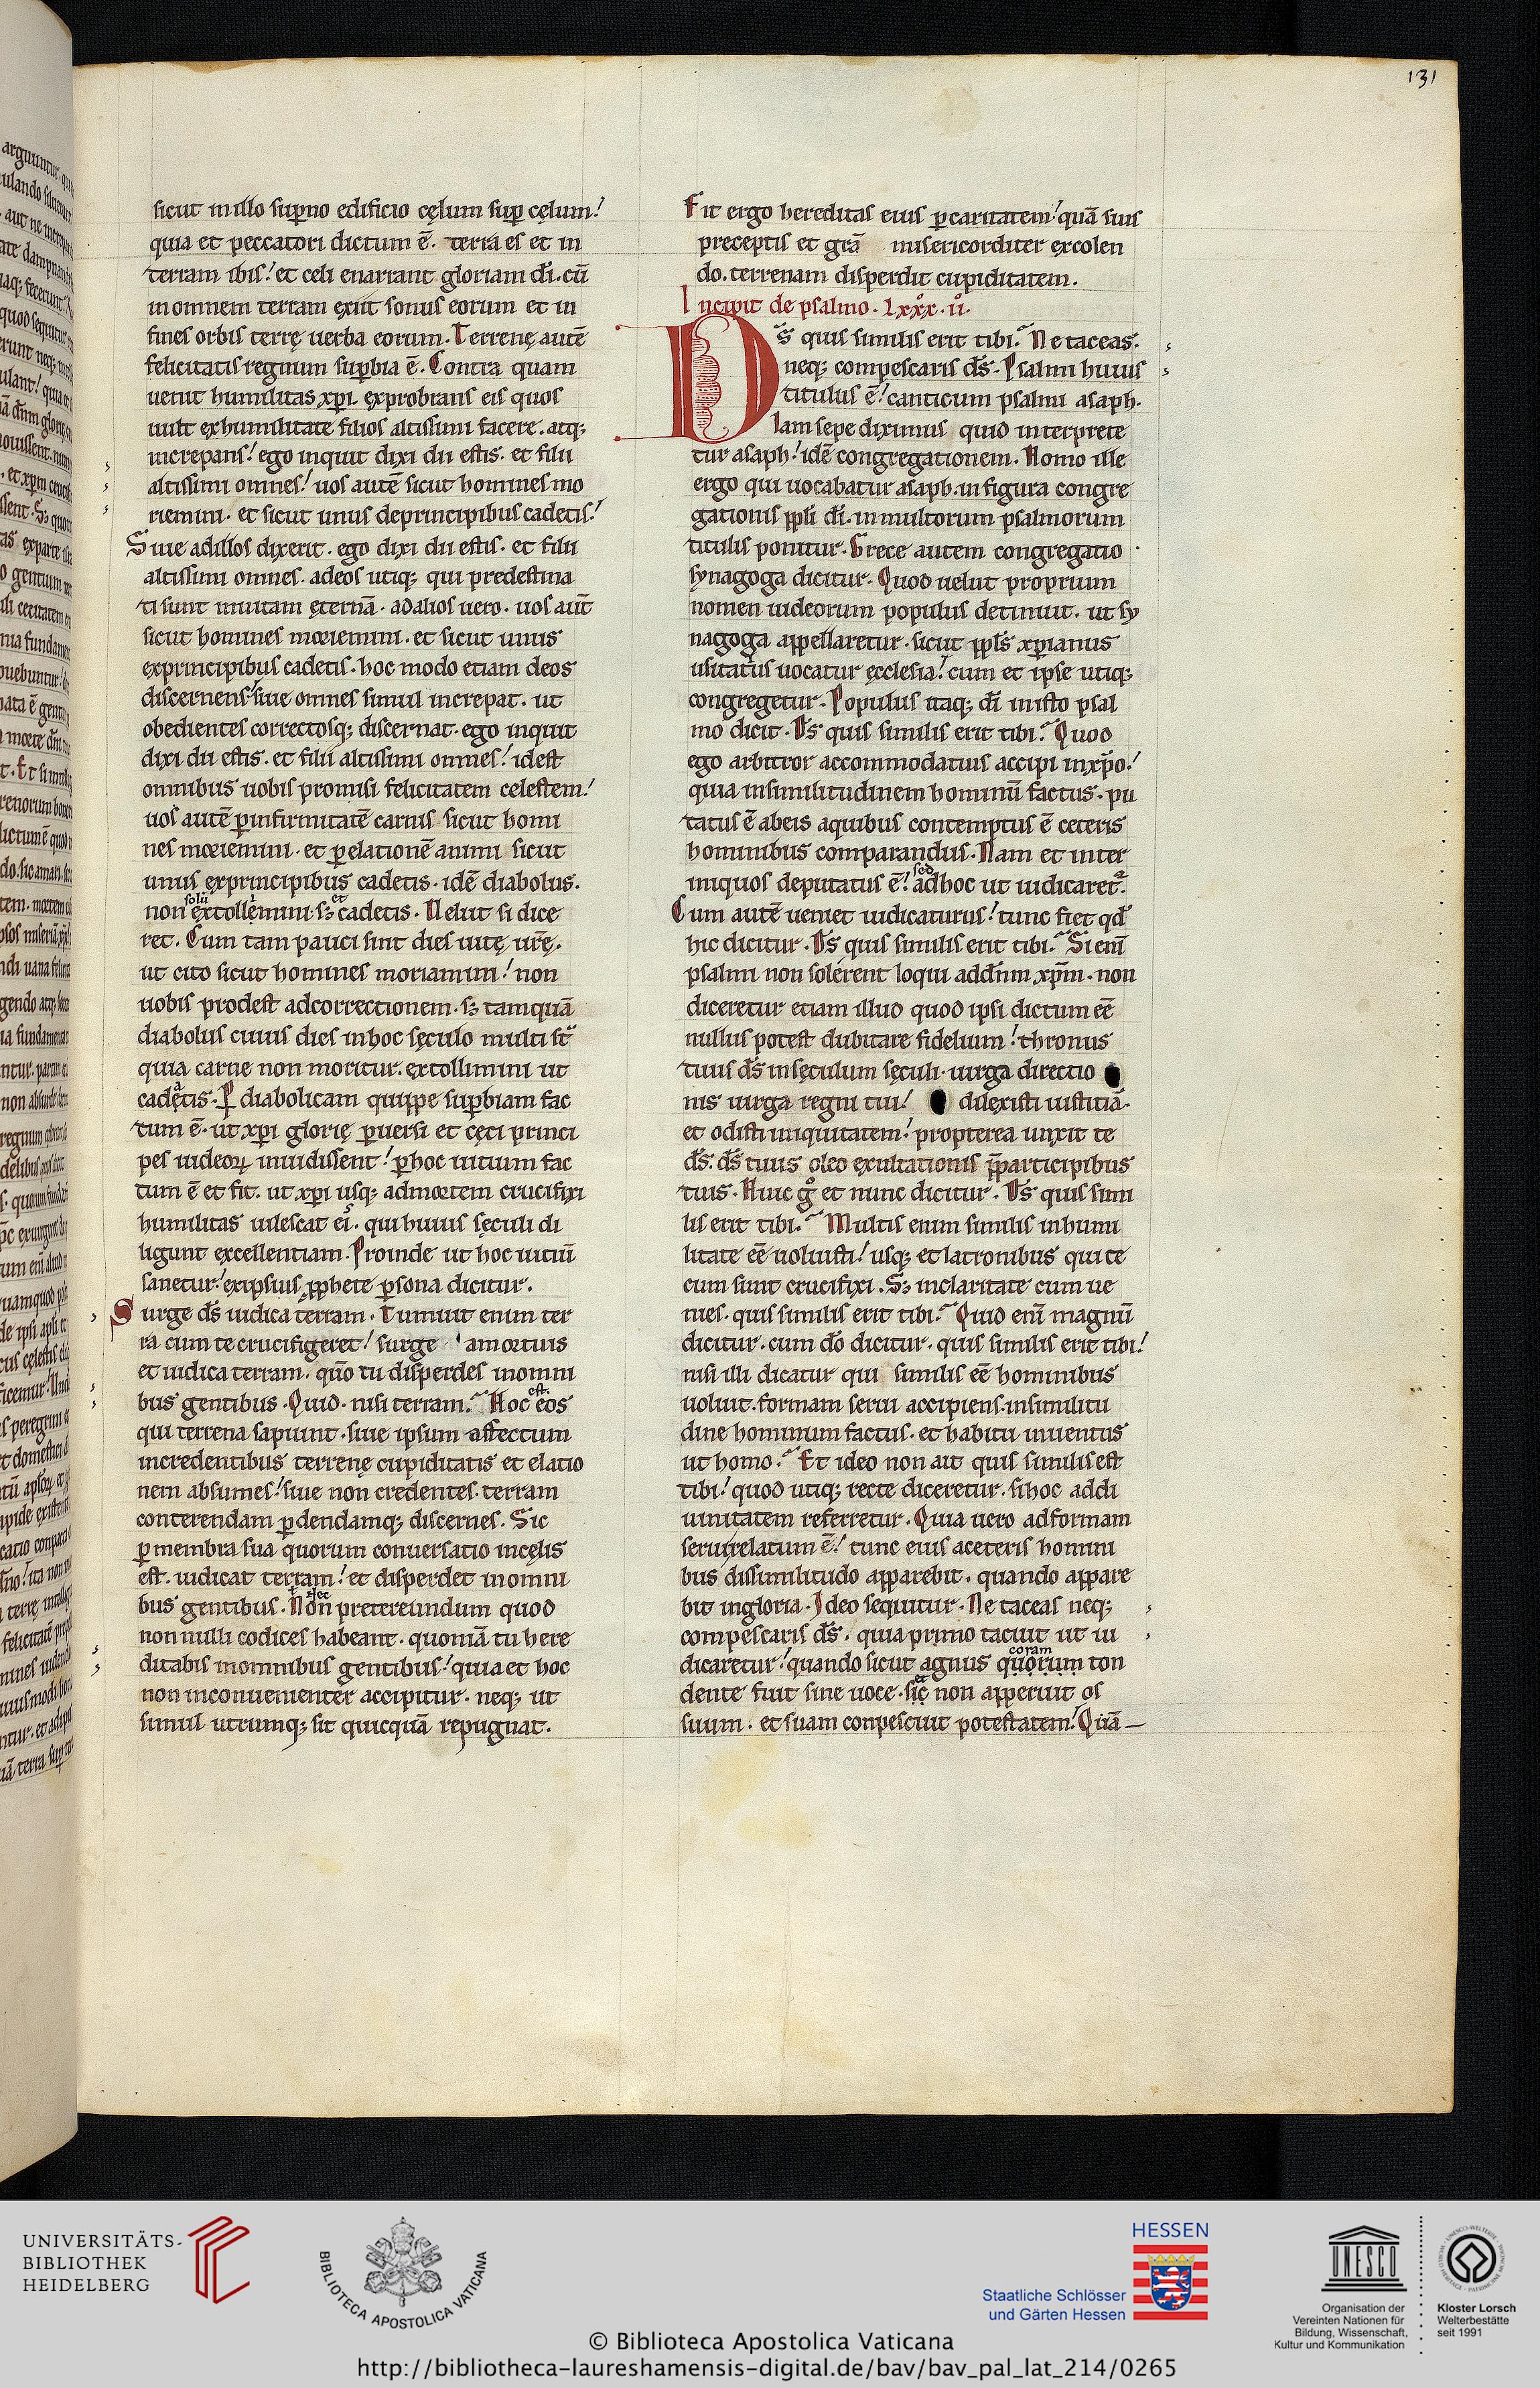 131
sicut in illo sup̱no edificio cęlum sup̱ cęlum!
quia et peccatori dictum ē. terra es et in
terram ibis! et celi enarrant gloriam dī. cū
in omnem terram exiit sonus eorum et in
fines orbis terrę uerba eorum. Terrenę autē
felicitatis regnum sup̱bia ē. Contra quam
uenit humilitas xp̄i. exprobrans eis quos
uult ex humilitate filios altissimi facere. atq;
increpans! ego inquit dixi dii estis. et filii
altissimi omnes! uos autē sicut homines mo
riemini. et sicut unus de principibus cadetis!
Siue ad illos dixerit. ego dixi dii estis. et filii
altissimi omnes. ad eos utiq; qui predestina
ti sunt in uitam ęternā. ad alios uero. uos aūt
sicut homines moriemini. et sicut unus
ex principibus cadetis. hoc modo etiam deos
discernens! siue omnes simul increpat. ut
obedientes correctosq; discernat. ego inquit
dixi dii estis. et filii altissimi omnes! id est
omnibus uobis promisi felicitatem celestem!
uos autē ꝑ infirmitatē carnis sicut homi
nes moriemini. et ꝑ elationē animi sicut
unus ex principibus cadetis. idē diabolus.
non solū extollemini. sꝫ et cadetis. Uelut si dice
ret. Cum tam pauci sint dies uitę ur̄ę.
ut cito sicut homines moriamini! non
uobis prodest ad correctionem. sꝫ tamquā
diabolus cuius dies in hoc sęculo multi st̄
quia carne non moritur. extollimini ut
cadatis. Ꝑ diabolicam quippe suꝑbiam fac
tum ē. ut xp̄i glorię ꝑuersi et cęci princi
pes iudeoꝝ inuidissent! ꝑ hoc uitium fac
tum ē et fit. ut xp̄i usq; ad mortem crucifixi
humilitas uilescat eis. qui huius sęculi di
ligunt excellentiam. Proinde ut hoc uitiū
sanetur! ex ipsius ꝓphete ꝑsona dicitur.
Surge d̄s iudica terram. Tumuit enim ter
ra cum te crucifigeret! surge a mortuis
et iudica terram. qūo tu disperdes in omni
bus gentibus. Quid. nisi terram? Hoc est eos
qui terrena sapiunt. siue ipsum affectum
in credentibus terrenę cupiditatis et elatio
nem absumes! siue non credentes. terram
conterendam ꝑdendamq; discernes. Sic
ꝑ membra sua quorum conuersatio in cęlis
est. iudicat terram! et disperdet in omni
bus gentibus. Nec pretereundum quod
nonnulli codices habeant. quoniā tu here
ditabis in omnibus gentibus! quia et hoc
non inconuenienter accipitur. neq; ut
simul utrumq; sit quicquā repugnat.
Fit ergo hereditas eius ꝑ caritatem! quā suis
preceptis et gr̄a misericorditer excolen
do. terrenam disperdit cupiditatem.
Incipit de psalmo. Lxxxͦ. iiͦ.
D̄s quis similis erit tibi? Ne taceas.
neq; compescaris d̄s. Psalmi huius
titulus ē! canticum psalmi asaph.
Iam sepe diximus quid interprete
tur asaph! idē congregationem. Homo ille
ergo qui uocabatur asaph. in figura congre
gationis pp̄li dī. in multorum psalmorum
titulis ponitur. Grece autem congregatio
synagoga dicitur. Quod uelut proprium
nomen iudeorum populus detinuit. ut sy
nagoga appellaretur. sicut pp̄ls xp̄ianus
usitatius uocatur ęcclesia! cum et ipse utiq;
congregetur. Populus itaq; dī in isto psal
mo dicit. D̄s quis similis erit tibi? Quod
ego arbitror accommodatius accipi in xp̄o!
quia in similitudinem hominū factus. pu
tatus ē ab eis a quibus contemptus ē ceteris
hominibus comparandus. Nam et inter
iniquos deputatus ē! sed ad hoc ut iudicaret̄.
Cum autē ueniet iudicaturus! tunc fiet qd̄
hic dicitur. D̄s quis similis erit tibi? Si enī
psalmi non solerent loqui ad dn̄m xp̄m. non
diceretur etiam illud quod ipsi dictum eē
nullus potest dubitare fidelium! thronus
tuus d̄s in sęculum sęculi. uirga directio
nis uirga regni tui! dilexisti iustitiā.
et odisti iniquitatem! propterea unxit te
d̄s. d̄s tuus oleo exultationis p̄ participibus
tuis. Huic gͦ et nunc dicitur. D̄s quis simi
lis erit tibi? Multis enim similis in humi
litate eē uoluisti! usq; et latronibus qui te
cum sunt crucifixi. Sꝫ in claritate cum ue
nies. quis similis erit tibi? Quid enī magnū
dicitur. cum dō dicitur. quis similis erit tibi!
nisi illi dicatur qui similis eē hominibus
uoluit. formam serui accipiens. in similitu
dine hominum factus. et habitu inuentus
ut homo? Et ideo non ait quis similis est
tibi! quod utiq; recte diceretur. si hoc ad di
uinitatem referretur. Quia uero ad formam
serui relatum ē! tunc eius a ceteris homini
bus dissimilitudo apparebit. quando appare
bit in gloria. Ideo sequitur. Ne taceas neq;
compescaris d̄s. quia primo tacuit ut iu
dicaretur! quando sicut agnus coram ton
dente fuit sine uoce. sic non apperuit os
suum. et suam conpescuit potestatem! Quā
UNIVERSITÄTS-
BIBLIOTHEK
HEIDELBERG
BIBLIOTECA APOSTOLICA VATICANA
HESSEN
Staatliche Schlösser
und Gärten Hessen
UNESCO
Organisation der
Vereinten Nationen für
Bildung, Wissenschaft,
Kultur und Kommunikation
Kloster Lorsch
Welterbestätte
seit 1991
© Biblioteca Apostolica Vaticana
http://bibliotheca-laureshamensis-digital.de/bav/bav_pal_lat_214/0265